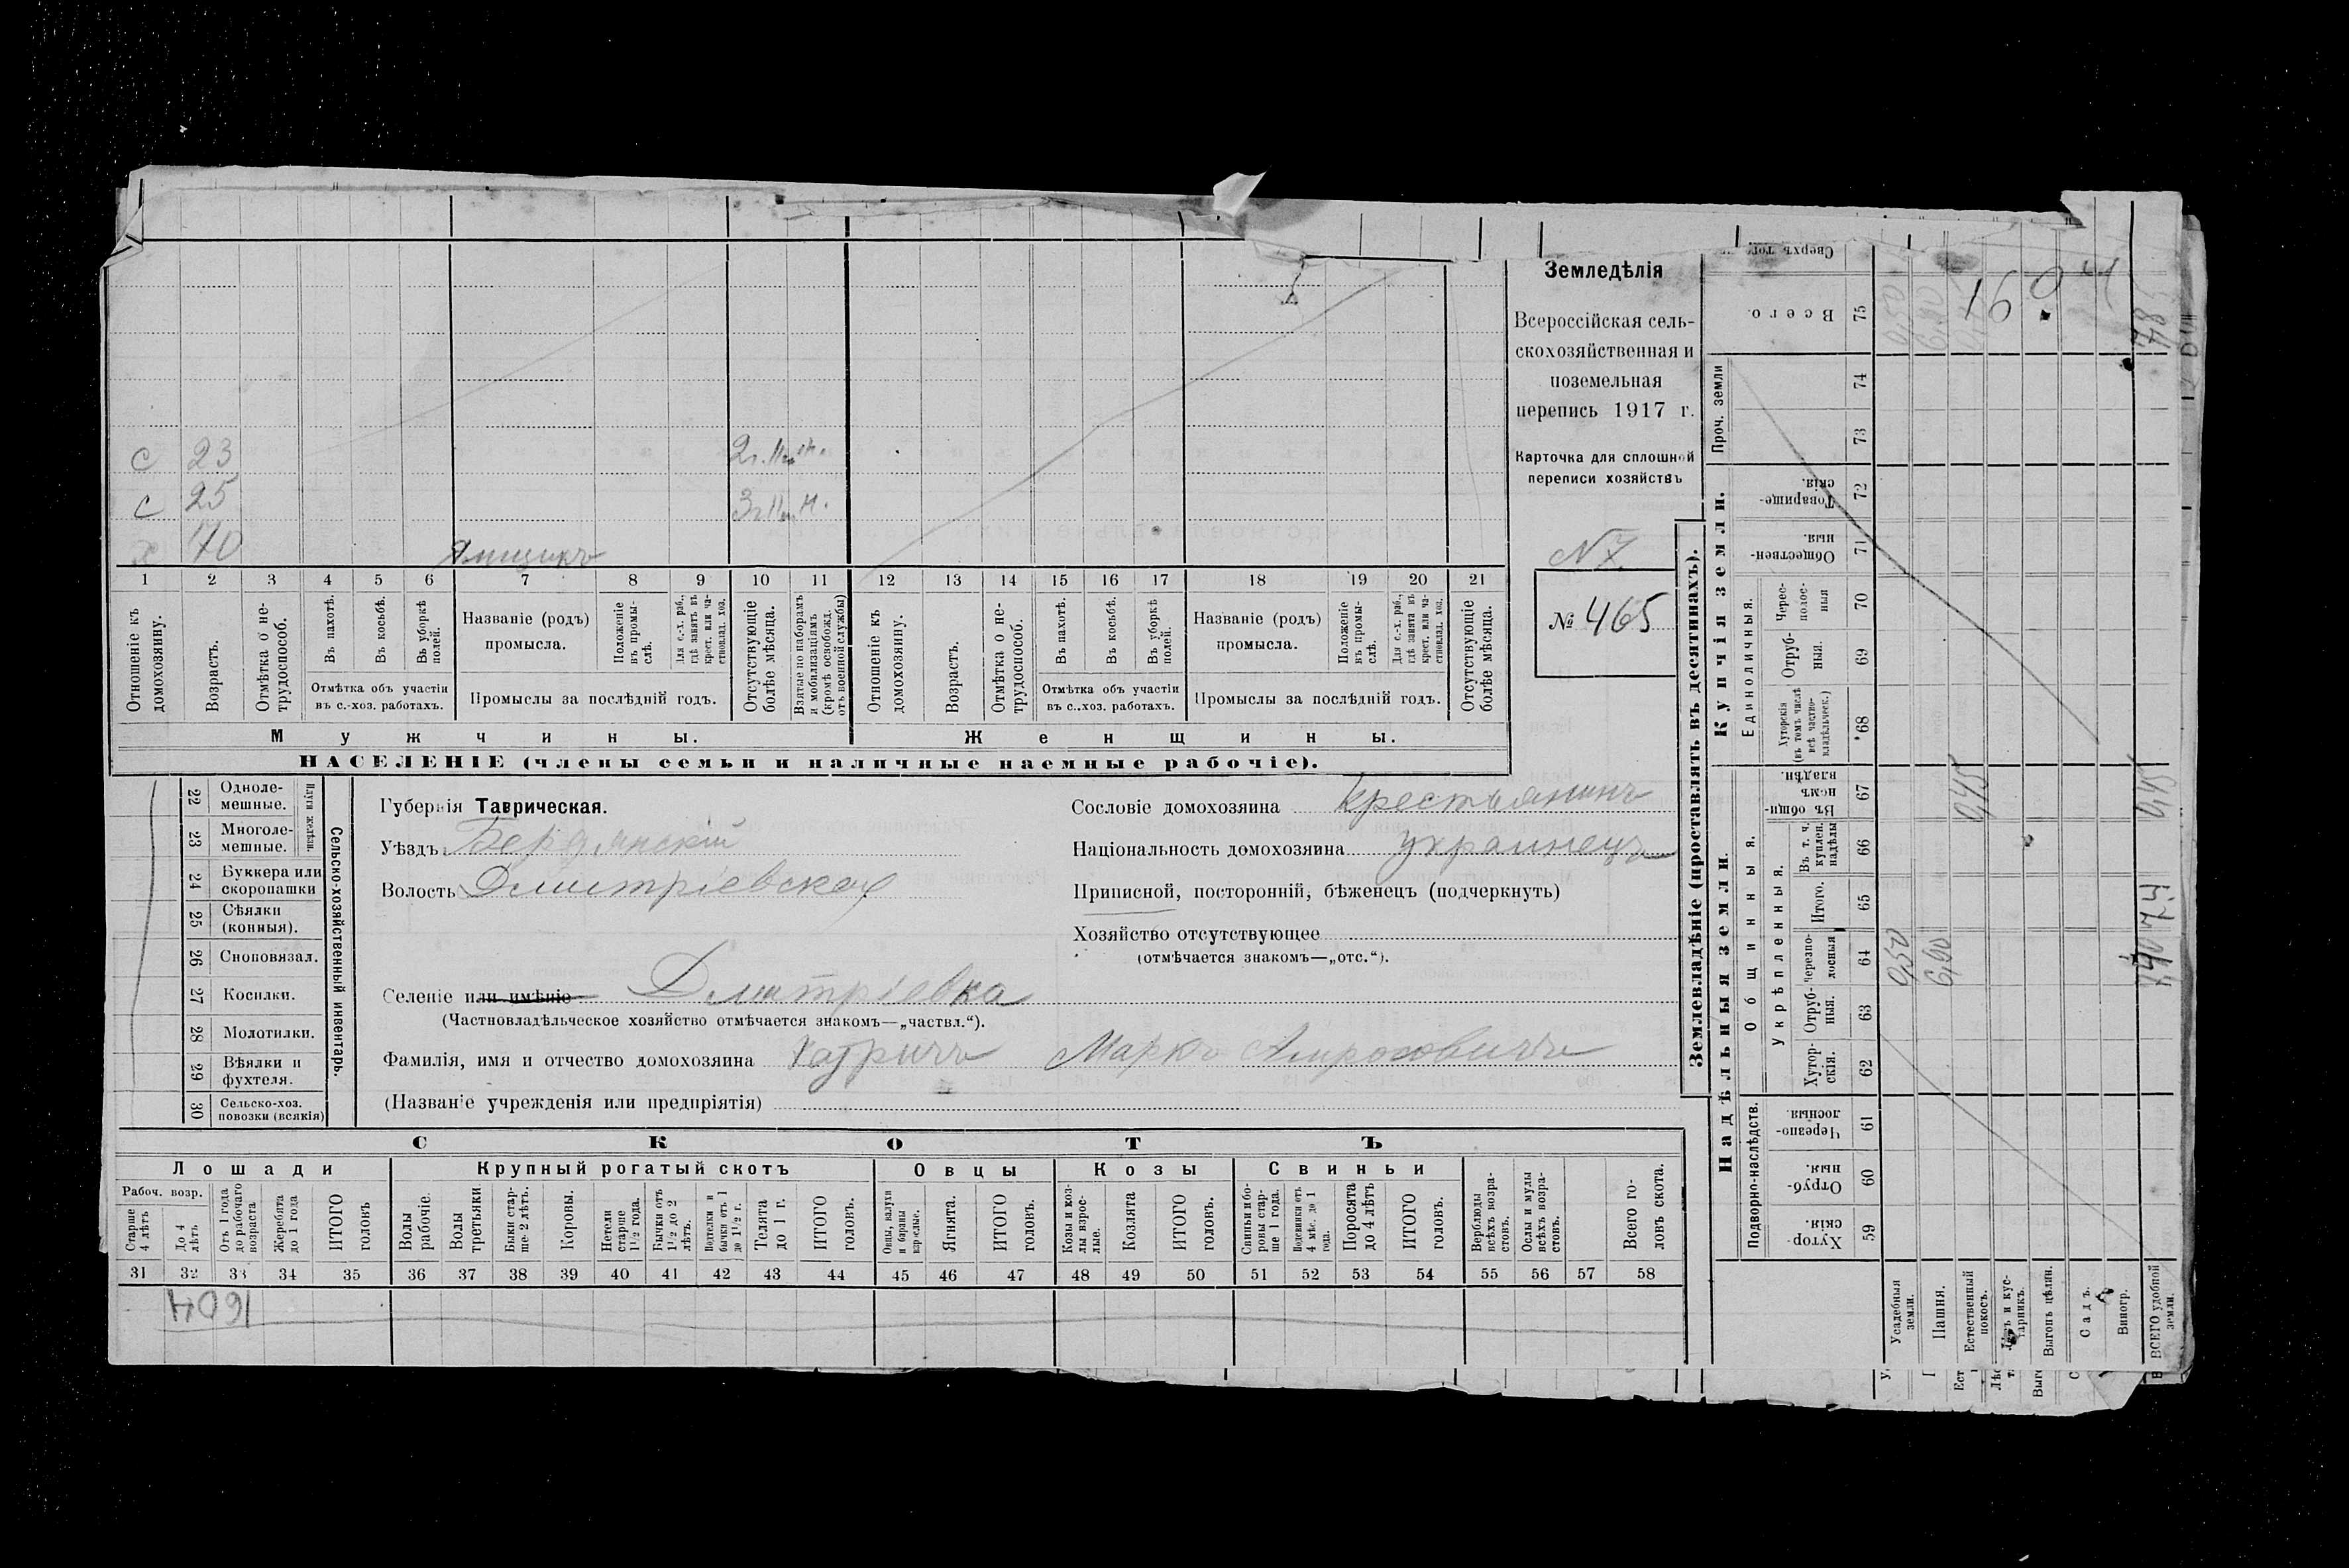 Земледѣлія
Всероссійская сель-
скохозяйственная и
поземельная
перепись 1917 г.
Карточка для сплошной
переписи хозяйствъ
N 7
№ 465
с 23
с 25
70 Ямщикъ
1 2 3 4 5 6 7 8 9 10 11 12 13 14 15 16 17 18 19 20 21
Отношеніе къ домохозяину.
Возрастъ.
Отмѣтка о не-трудоспособ.
Въ пахотѣ.
Въ косьбѣ.
Въ уборкѣ полей.
Отмѣтка объ участіи
въ с.-хоз. работахъ.
Названіе (родъ)
промысла.
Положеніе въ промы-слѣ.
Для с.-х. раб., гдѣ занятъ въ крест. или ча-стновлад. хоз.
Промыслы за послѣдній годъ.
Отсутствующіе болѣе мѣсяца.
Взятые по наборамъ и мобилизаціямъ (кромѣ освобожд. отъ военной службы)
Отношеніе къ домохозяину.
Возрастъ.
Отмѣтка о не-трудоспособ.
Въ пахотѣ.
Въ косьбѣ.
Въ уборкѣ полей.
Отмѣтка объ участіи
въ с..хоз. работахъ.
Названіе (родъ)
промысла.
Положеніе въ промы-слѣ.
Для с.-х. раб., гдѣ занята въ крест. или ча-стновлад. хоз.
Промыслы за послѣдній годъ.
Отсутствующіе болѣе мѣсяца.
Мужчины. Женщины.
НАСЕЛЕНІЕ (члены семьи и наличные наемные рабочіе).
22 Одноле-мешные.
23 Многоле-мешные.
Плуги желѣзн.
24 Буккера или скоропашки
25 Сѣялки (конныя).
26 Сноповязал.
27 Косилки.
28 Молотилки.
29 Вѣялки и фухтеля.
30 Сельско-хоз. повозки (всякія)
Сельско-хозяйственный инвентарь.
Губернія Таврическая.
Уѣздъ Бердянскій
Волость Дмитріевская
Сословіе домохозяина крестьянинъ
Національность домохозяина украинецъ
Приписной, посторонній, бѣженецъ (подчеркнуть)
Хозяйство отсутствующее
(отмѣчается знакомъ—„отс.“).
Селеніе или имѣніе Дмитріевка
(Частновладѣльческое хозяйство отмѣчается знакомъ—„частвл.“).
Фамилія, имя и отчество домохозяина Маркъ
(Названіе учрежденія или предпріятія)
СКОТЪ
Лошади Крупный рогатый скотъ Овцы Козы Свиньи
Рабоч. возр.
Старше 4 лѣтъ
До 4 лѣтъ
Отъ 1 года до рабочаго возраста
Жеребята до 1 года
ИТОГО головъ
Волы рабочіе.
Волы третьяки
Быки стар-ше 2 лѣтъ.
Коровы.
Нетели старше 1½ года.
Бычки отъ 1½ до 2 лѣтъ.
Подтелки и бычки отъ 1 до 1½ г.
Телята до 1 г.
ИТОГО головъ.
Овцы, валухи и бараны взрослые.
Ягнята.
ИТОГО головъ.
Козы и коз-лы взрос-лые.
Козлята
ИТОГО головъ.
Свиньи и бо-ровы стар-ше 1 года.
Подсвинки отъ 4 мѣс. до 1 года.
Поросята до 4 лѣтъ
ИТОГО головъ.
Верблюды всѣхъ возра-стовъ.
Ослы и мулы всѣхъ возра-стовъ.
Всего го-ловъ скота.
31 32 33 34 35 36 37 38 39 40 41 42 43 44 45 46 47 48 49 50 51 52 53 54 55 56 57 58
1604
Землевладѣніе (проставлять въ десятинахъ).
Надѣльныя земли. Купчія земли. Проч. земли
Подворно-наслѣдств.
Общинныя.
Укрѣпленныя.
Единоличныя.
Хутор-скія. 59
Отруб-ныя. 60
Черезпо-лосныя. 61
Хутор-скія. 62
Отруб-ныя. 63
Черезпо-лосныя 64
Итого. 65
Въ т. ч. куплен. надѣлы 66
Въ общин-номъ владѣн. 67
Хуторскія (въ томъ числѣ всѣ частно-владѣльческ.) 68
Отруб-ныя. 69
Черес-полос-ныя 70
Обществен-ныя. 71
Товарище-скія. 72
73
74
Всего. 75
Сверхъ тог
Усадебныя земли. 0,50
Пашня. 6,90
Естественный покосъ. 0,45
Лѣсъ и кус-тарникъ.
Выгонъ цѣлин.
Садъ.
Виногр.
ВСЕГО удобной земли.